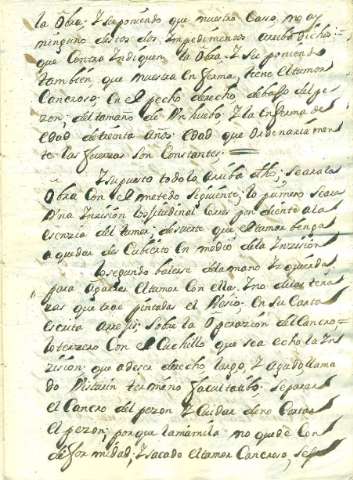 la Obra; Y suponiendo que nuestro Caso, no ay
ninguno destos dos Impedimentos arriba dichos
que Contra Indiquen la Obra, Y suponiendo
tambien que nuestra Enferma, tiene el tumor
Canceroso, En el pecho derecho, debaxo del pe-
zon; del tamaño de Un huebo; Y la Enferma de
Edad de treinta años: Edad que Ordenariamen
te las fuerzas son Constantes:
Y supuesto todo lo arriba dho; se ara la
Obra Con el metodo siguiente; lo primero se ara
Una Inzision lonjitudinal Corres pondiente a la
del tumor; de suerte que el tumor benga
a quedar descubierto En medio dela Inzision
lo segundo balerse dela mano Yzquierda
para agarrar el tumor Con ella, Y no delas tena
zas que trae pintadas el En su Carta
Escrita sobre la Operazion del Cancro,
lo terzero Con el Cuchillo que sea echo la In
zision; que a deser derecho largo, Y agudo llama
do Bisturin separar
el Cancro del pezon, Y Cuidar deno Cortar
el pezon; porque la mamila no quede Con
deformidad; Y sacado el tumor Canceroso,